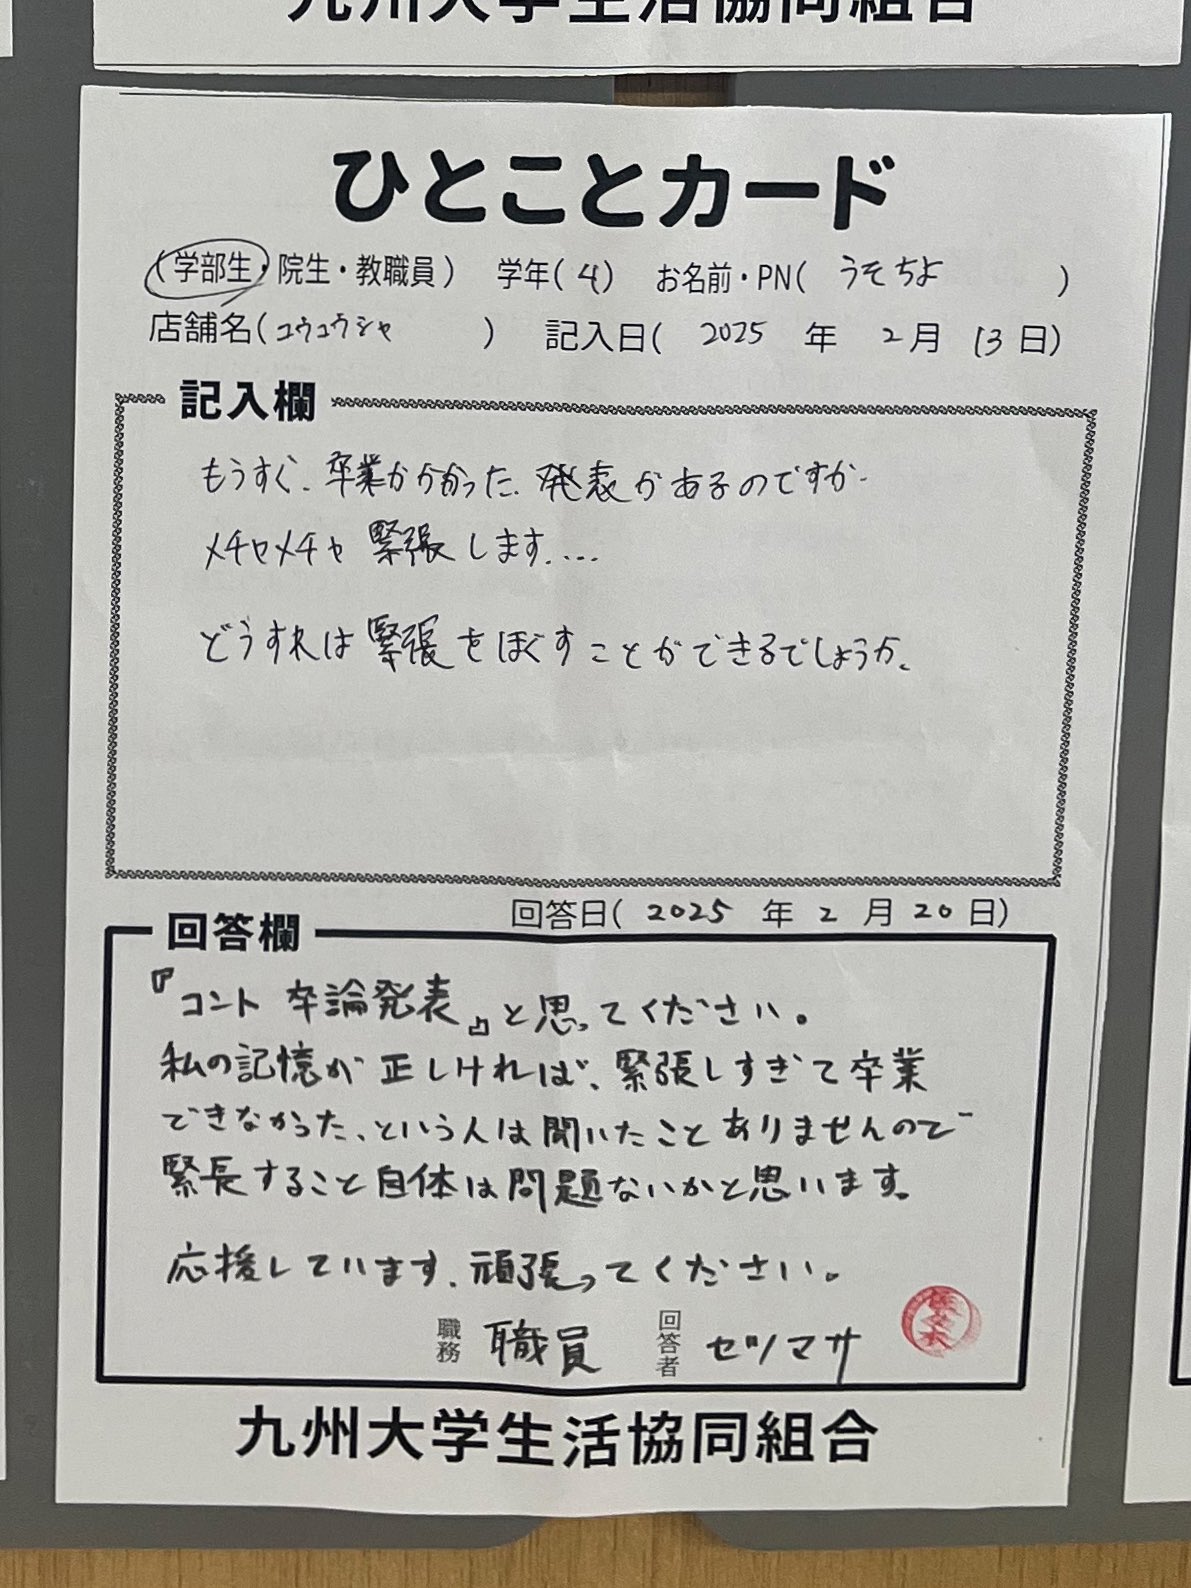 九州大学生活協同組合
ひとことカード
(学部生・院生・教職員) 学年(4) お名前・PN(うそちよ)
店舗名(ユウユウシャ) 記入日(2025年2月13日)
記入欄
もうすぐ、卒業がかかった、発表があるのですが、
メチャメチャ緊張します....
どうすれば緊張をほぐすことができるでしょうか。
回答日(2025年2月20日)
回答欄
『コント 卒論発表』と思ってください。
私の記憶が正しければ、緊張しすぎて卒業
できなかった、という人は聞いたことありませんので
緊長すること自体は問題ないかと思います。
応援しています、頑張ってください。
職務 職員 回答者 セツマサ
佐々木
九州大学生活協同組合